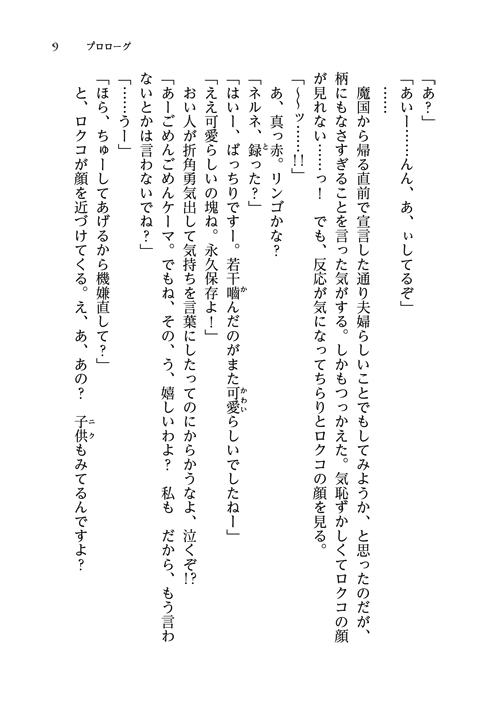 9　プロローグ
「あ？」
「あいー……んん、あ、ぃしてるぞ」
……
　魔国から帰る直前で宣言した通り夫婦らしいことでもしてみようか、と思ったのだが、
柄にもなさすぎることを言った気がする。しかもつっかえた。気恥ずかしくてロクコの顔
が見れない……っ！　でも、反応が気になってちらりとロクコの顔を見る。
「～～ッ……!!」
　あ、真っ赤。リンゴかな？
「ネルネ、録った？」
「はいー、ばっちりですー。若干嚙んだのがまた可愛らしいでしたねー」
「ええ可愛らしいの塊ね。永久保存よ！」
　おい人が折角勇気出して気持ちを言葉にしたってのにからかうなよ、泣くぞ!?
「あーごめんごめんケーマ。でもね、その、う、嬉しいわよ？　私も　だから、もう言わ
ないとかは言わないでね？」
「……うー」
「ほら、ちゅーしてあげるから機嫌直して？」
　と、ロクコが顔を近づけてくる。え、あ、あの？　子供もみてるんですよ？